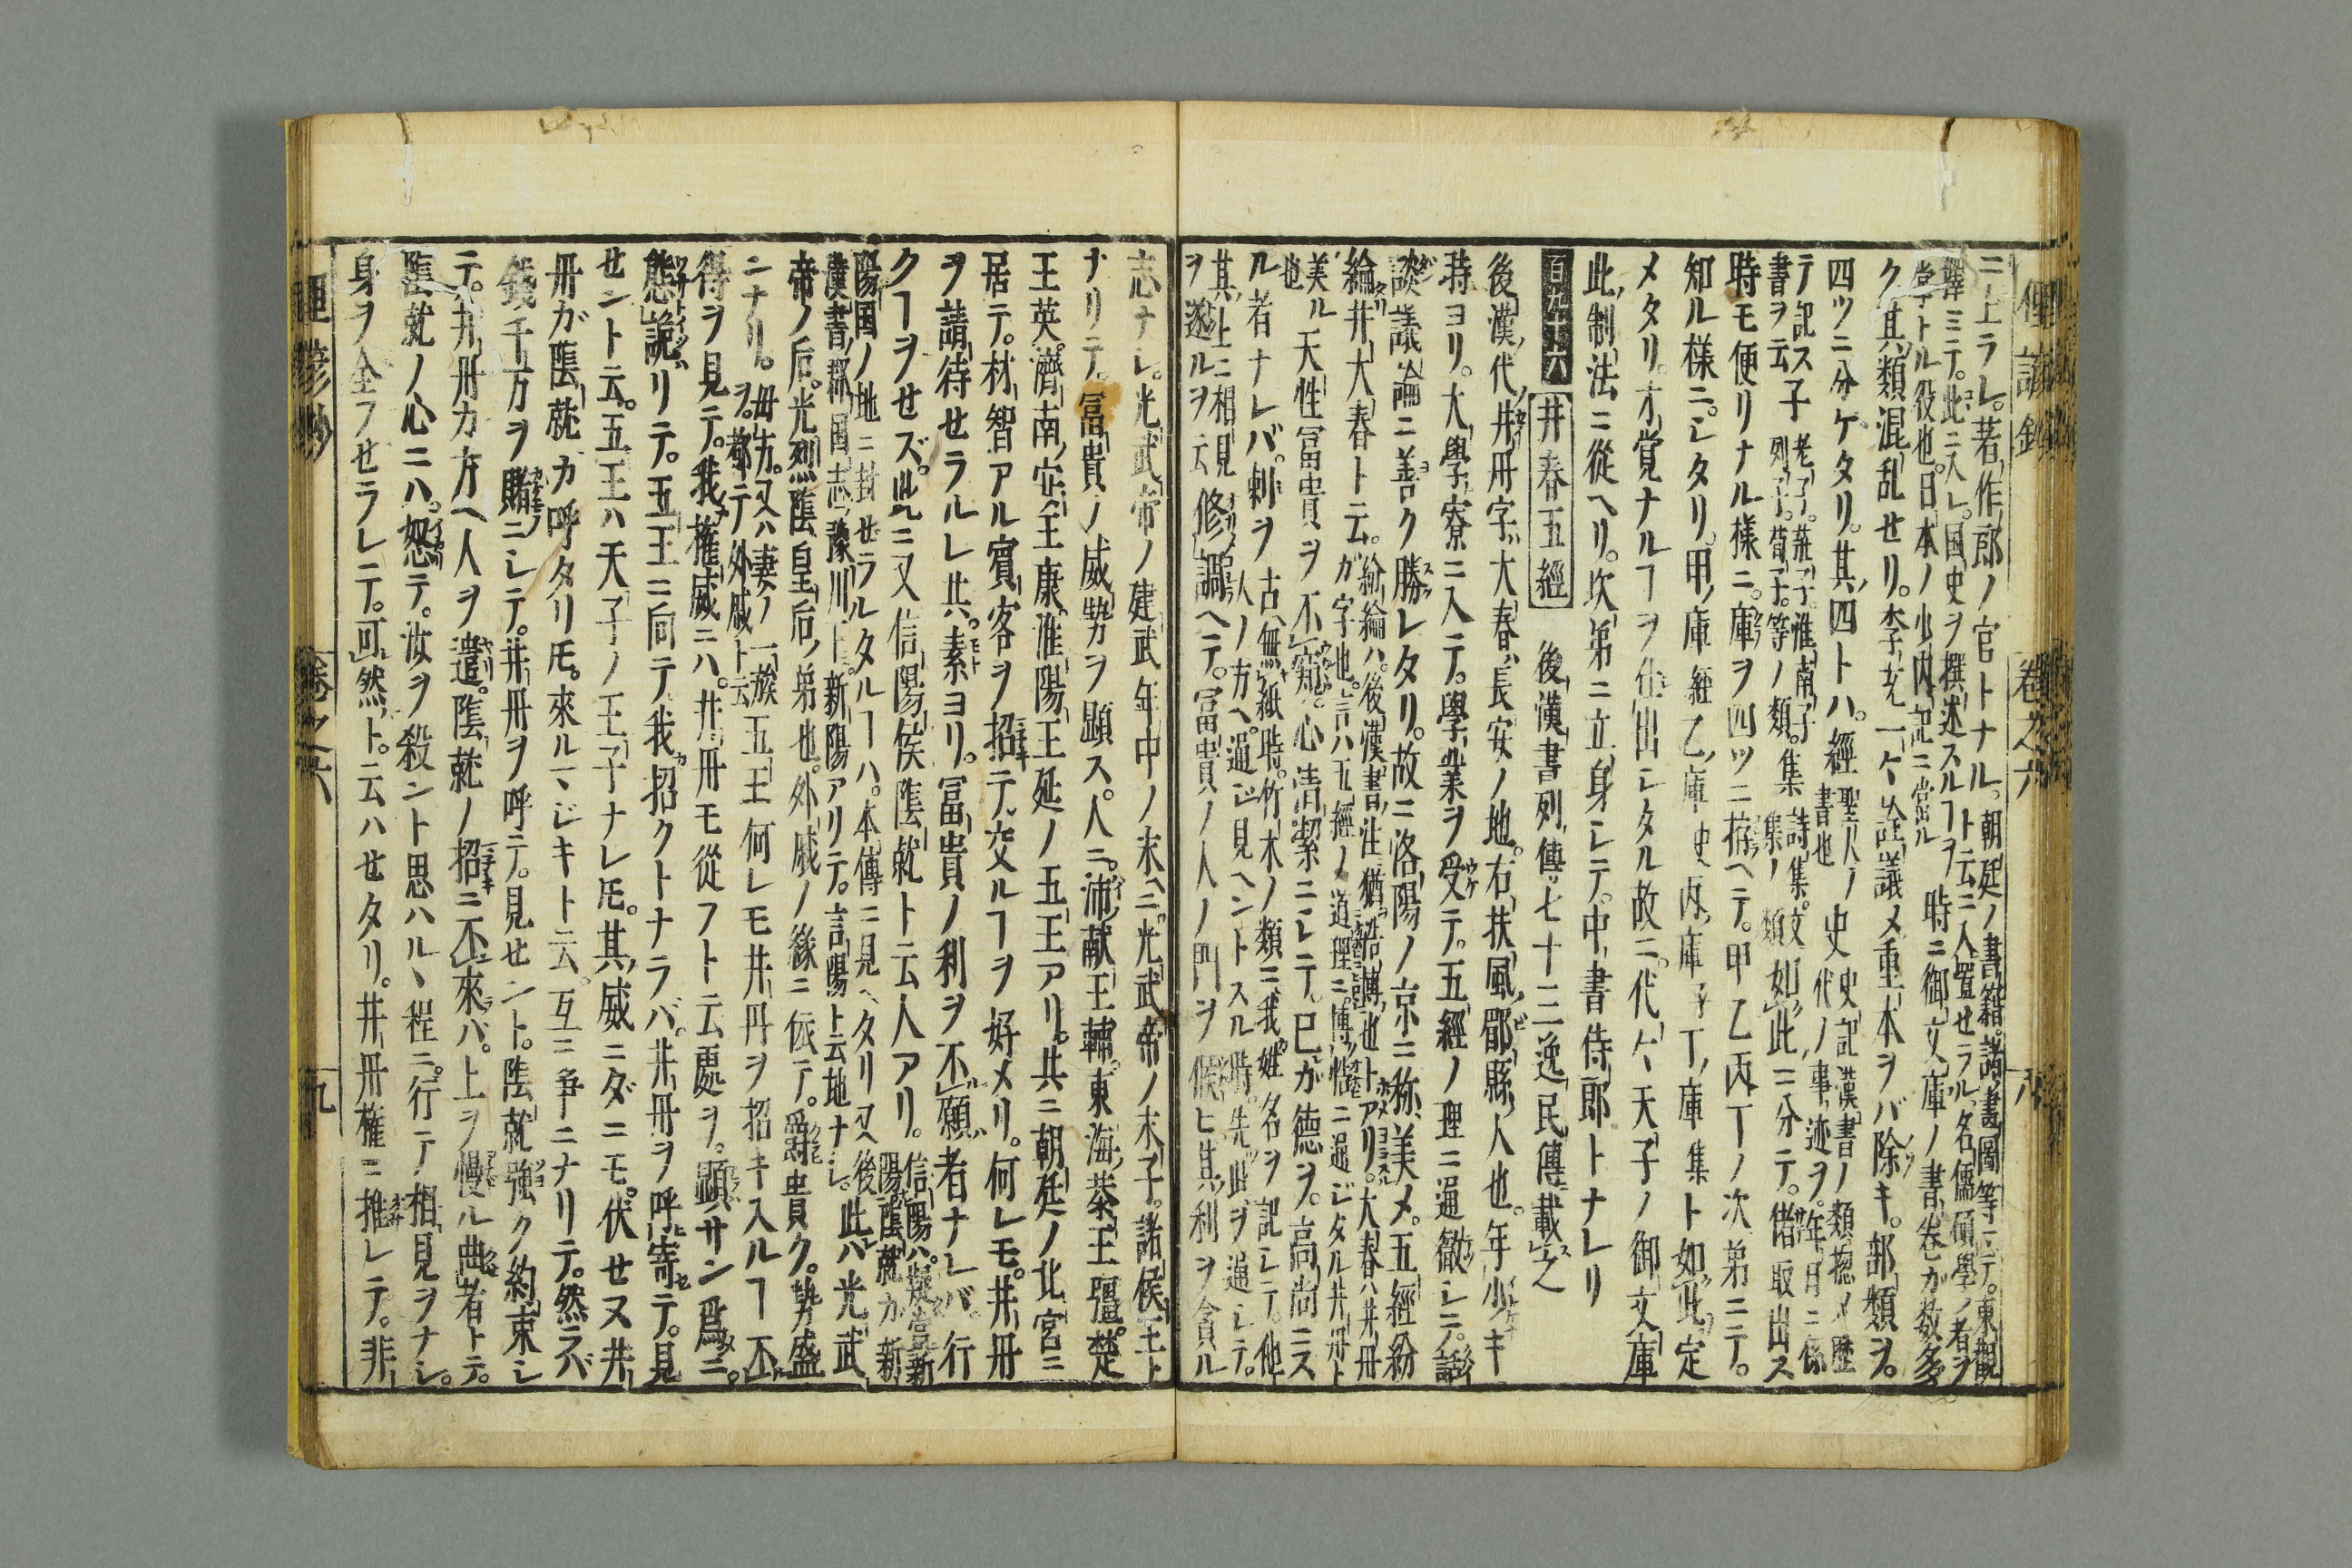 俚諺鈔 卷之六 八
ニ上ラレ。著作郎ノ官トナル。朝廷ノ書籍。諸書圖等ニテ。東觀ト云ニ入置セラル。名儒碩學ノ者ヲ
擇ミテ。此ニ入レ。国史ヲ撰述スルヿヲ掌トル役也。日本ノ少内記ニ當ル 時ニ御文庫ノ書卷ガ数多
ク其類混乱セリ。李充一々詮議メ重本ヲバ除キ。部類ヲ。
四ツニ分ゲタリ。其四トハ。經 聖人ノ書也 史 史記漢書ノ類揔メ歴代ノ事迹ヲ。年月ニ係
テ記ス書ヲ云 子 老子。莊子。淮南子列子。荀子。等ノ類。 集 詩集。文集ノ類 如此ニ分テ。偖取出ス
時モ便リナル様ニ。庫ヲ四ツニ拵ヘテ。甲乙丙丁ノ次第ニテ。
知ル様ニ。シタリ。甲庫 經 乙庫 史 丙庫 子 丁庫 集 ト如此定
メタリ。才覚ナルヿヲ仕出シタル故ニ。代々天子ノ御文庫
此制法ニ從ヘリ。次第ニ立身シテ。中書侍郎トナレリ
百六十六 井春五經 後漢書列傳七十三逸民傳載之
後漢代井丹字大春長安ノ地。右扶風郿縣人也。年少キ
時ヨリ。大學寮ニ入テ。學業ヲ受テ。五經ノ理ニ通徹シニ。
談議論ニ善ク勝レタリ。故ニ洛陽ノ京ニ称美メ。五經紛
綸井大春ト云。紛綸ハ。後漢書注猶浩博也トアリ。大春ハ井丹ガ字也。言ハ五經ノ道理ニ博ク通ジタル井丹ト
美ル也 天性冨貴ヲ不窺。心清潔ニシテ。己ガ德ヲ。高尚ニス
ル者ナレバ。刺ヲ 古無紙時。竹木ノ類ニ我姓名ヲ記シテ。他人ノ方ヘ。通ジ見ヘントスル時。先此ヲ通シテ。
其上ニ相見ヲ遂ルヲ云 修調ヘテ。冨貴ノ人ノ門ヲ候ヒ其利ヲ貪ル
志ナシ。光武帝ノ建武年中ノ末ニ。光武帝ノ末子。諸侯王ト
ナリテ。冨貴ノ威勢ヲ顕ス。人ニ。沛献王輔。東海恭王彊。楚
王英。濟南安王康。淮陽王延ノ五王アリ。共ニ朝廷ノ北宮ニ
居テ。材智アル賓客ヲ招テ。交ルヿヲ好メリ。何レモ。井丹
ヲ請待セラルレ共。素ヨリ。冨貴ノ利ヲ不願者ナレバ。行
クヿヲせズ。此ニ又信陽侯陰就ト云人アリ。信陽ハ。疑當新陽。陰就ガ新
陽国ノ地ニ封せラルタルヿハ。本傳ニ見ヘタリ又後漢書郡国志豫川上。新陽アリテ。言陽ト云地ナシ。 此ハ光武
帝ノ后。光烈陰皇后ノ弟也。外戚ノ緣ニ依テ。爵貴ク。勢盛
ニナリ。毋方。又ハ妻ノ一族ヲ。都テ外戚ト云 五王何レモ井丹ヲ招キ入ルヿ不
得ヲ見テ。我權威ニハ。井丹モ從フト云處ヲ。顕サン爲ニ。
態詭リテ。五王ニ向テ我招クトナラバ。井丹ヲ呼寄テ。見
せント云。五王ハ天子ノ王子ナレ𪜈。其威ニダニモ。伏せヌ井
丹ガ陰就カ呼タリ𪜈。來ルマジキト云。互ニ爭ニナリテ。然ラバ
錢千万ヲ賭ニシテ。井丹ヲ呼テ。見せント。陰就強ク約束シ
テ。井丹カ方ヘ人ヲ遣。陰就ノ招ニ不來バ。上ヲ慢ル曲者トテ。
陰就ノ心ニハ。怒テ。汝ヲ殺ント思ハルヽ程ニ。行テ相見ヲナシ。
身ヲ全フせラレテ。可然ト。云ハせタリ。井丹權ニ推レテ。非
俚諺鈔 卷之六 九